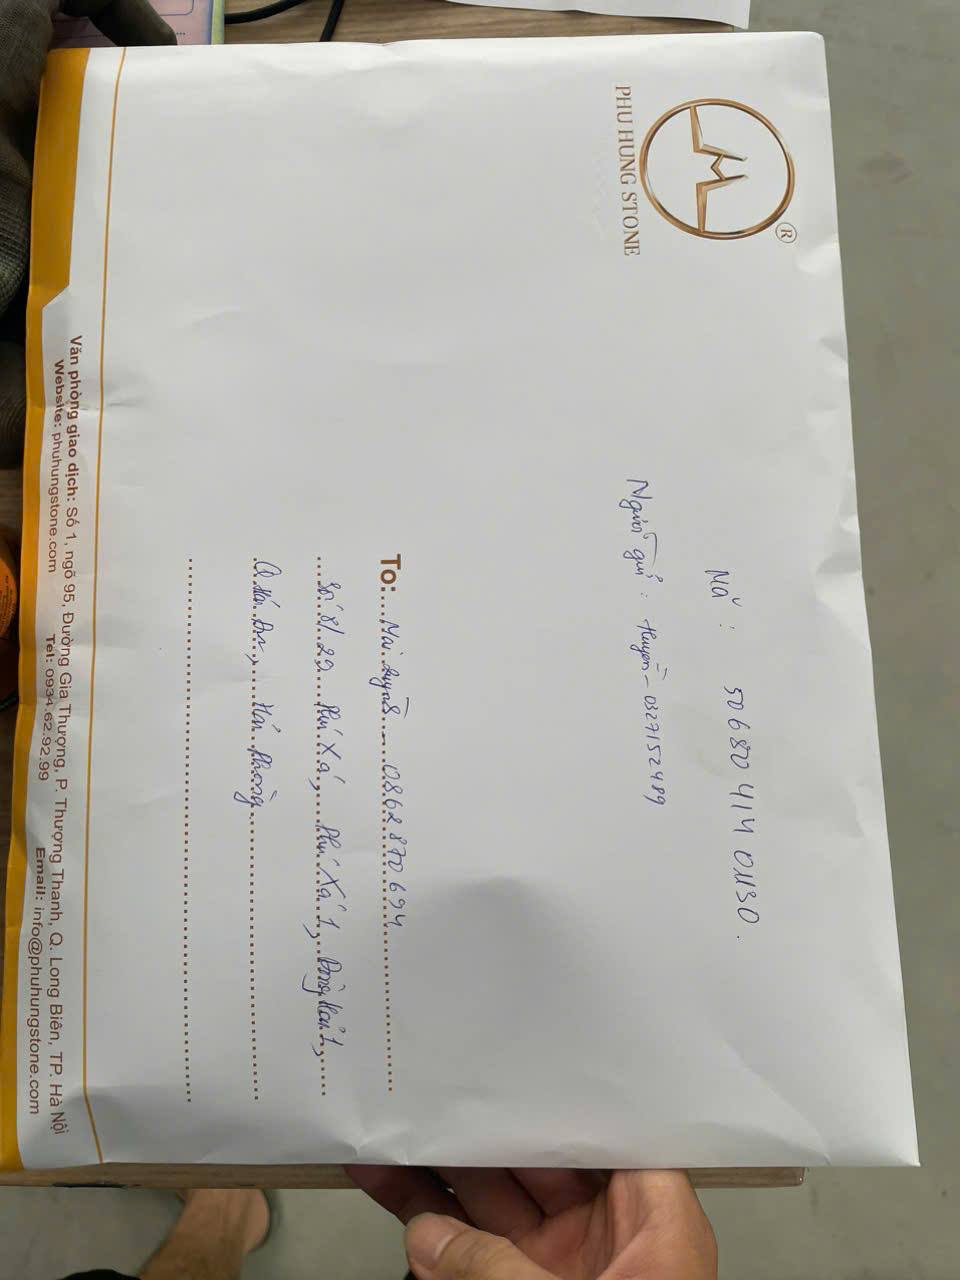 ®
PHU HUNG STONE
Mã: 50680 414 01130.
Người gửi: Huyền - 0327152489
To: Mai Luyến - 0862 870 694
Số 8/29 Phú Xá, Phú Xá 1, Đông Hải 1,
Q Hải An, Hải Phòng
Văn phòng giao dịch: Số 1, ngõ 95, Đường Gia Thượng, P. Thượng Thanh, Q. Long Biên, TP. Hà Nội
Website: phuhungstone.com Tel: 0934.62.92.99 Email: info@phuhungstone.com